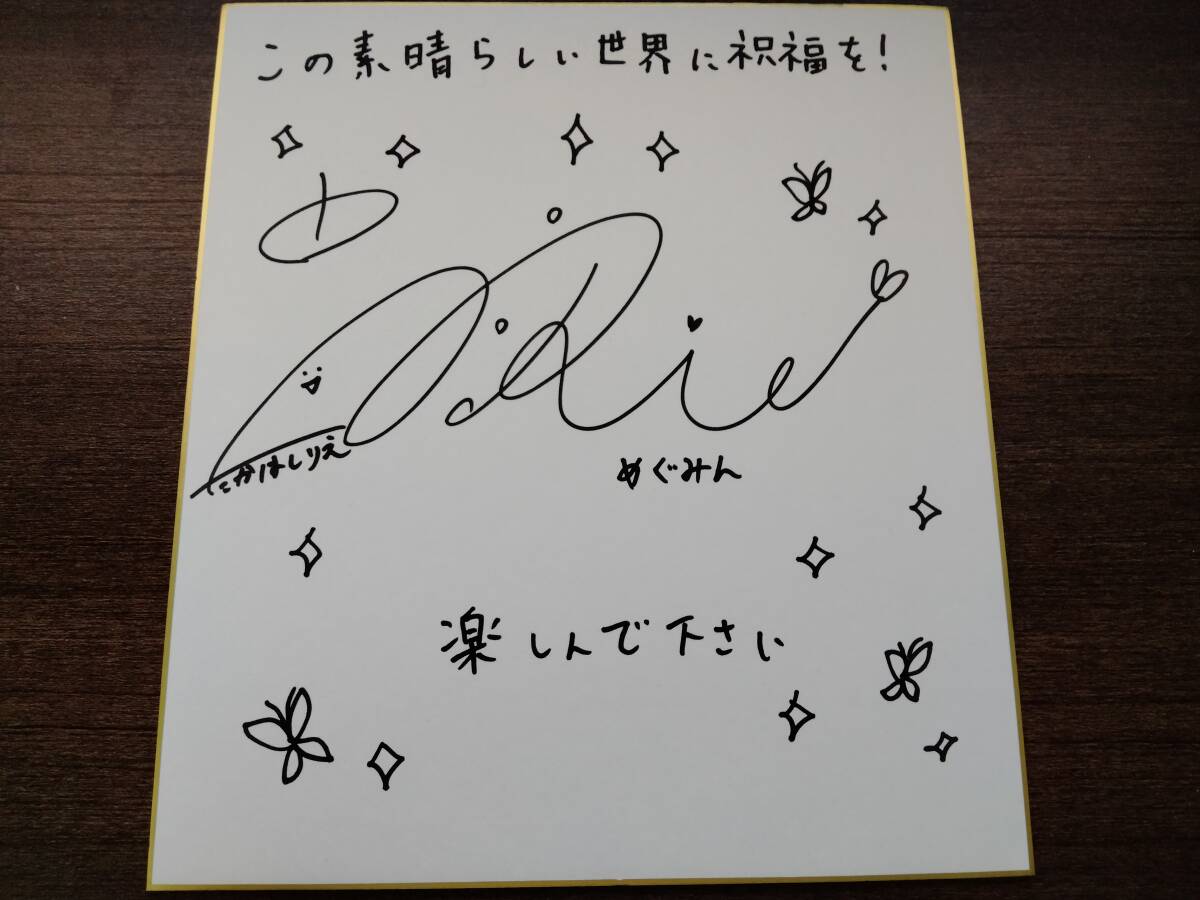 この素晴らしい世界に祝福を!
Rie
たかはしりえ
めぐみん
楽しんで下さい